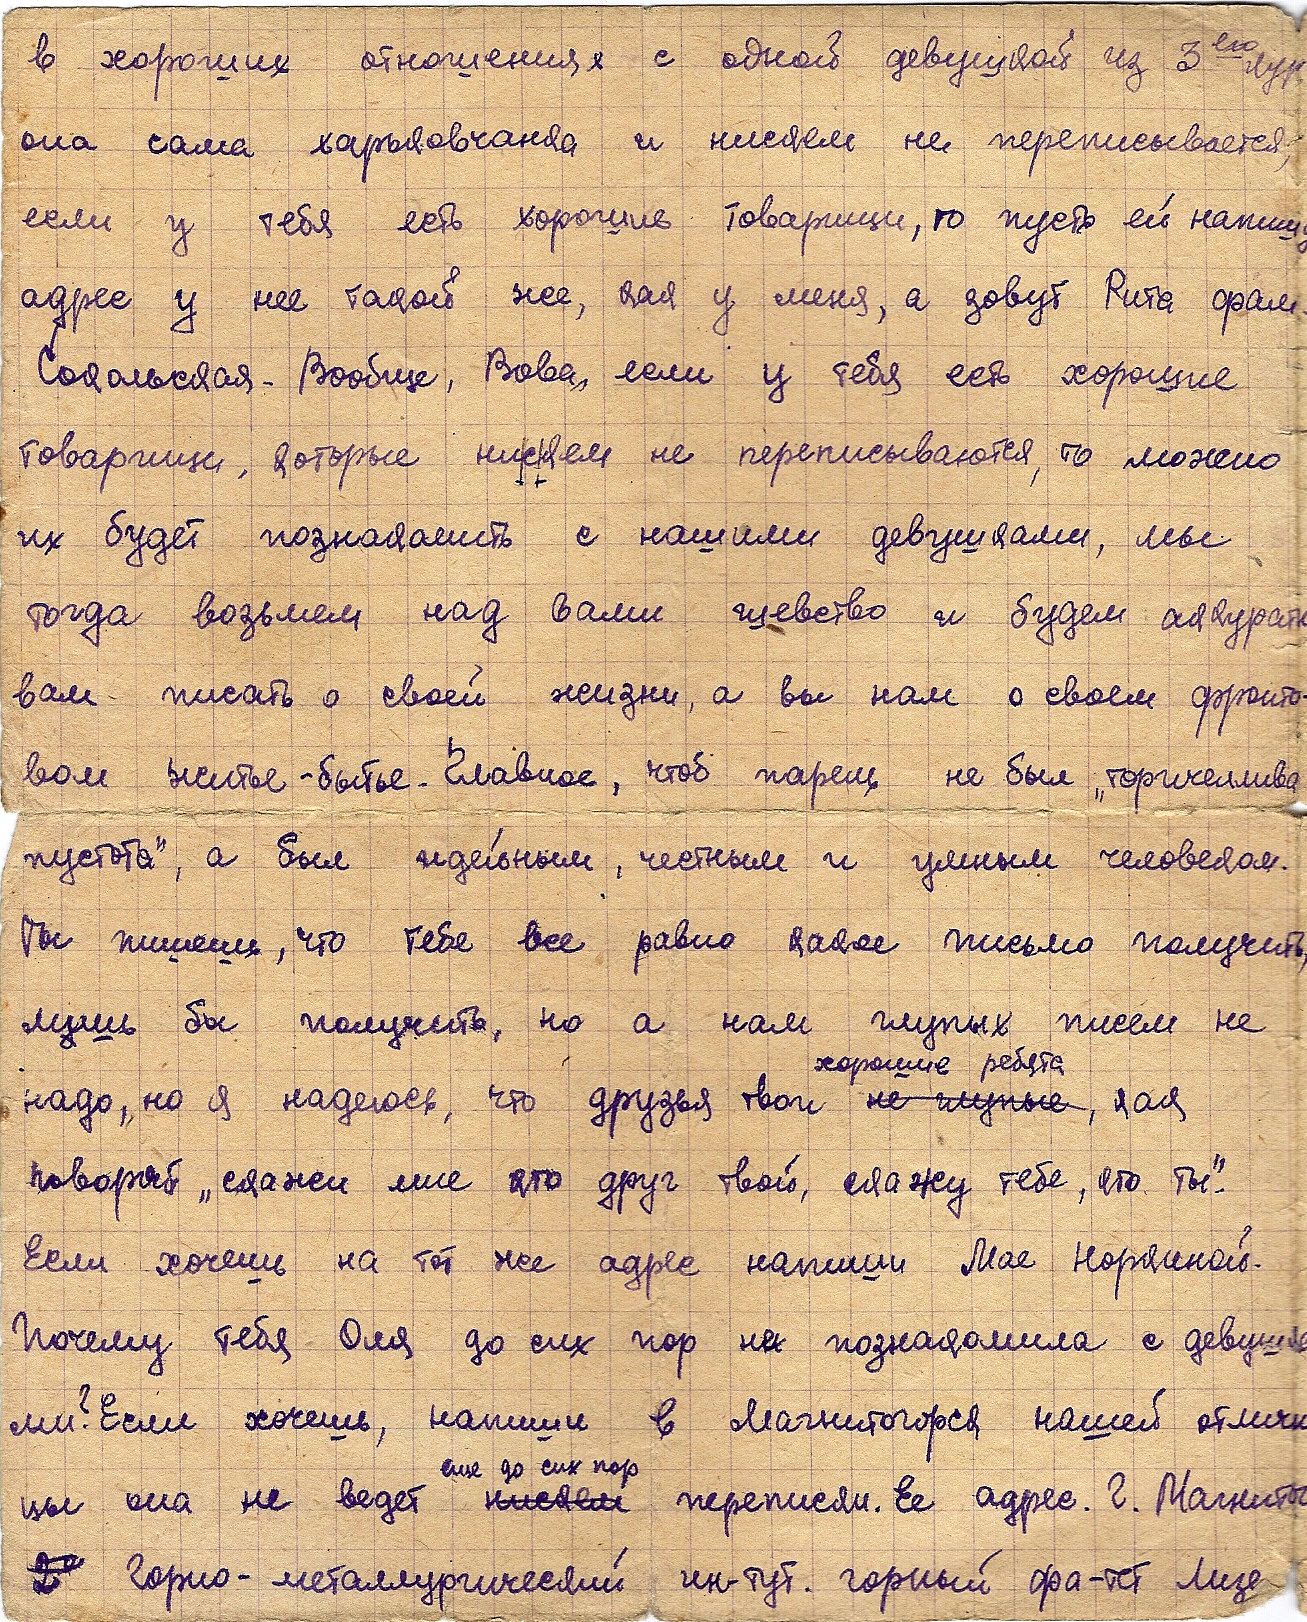 в хороших отношениях с одной девушкой из 3его кур
она сама харьковчанка и никем не переписывается,
если у тебя есть хорошие товарищи, то пусть ей напишу
адрес у нее такой же, как у меня, а зовут Рита фам.
Сокольская. Вообще, Вова, если у тебя есть хорошие
товарищи, которые ни с кем не переписываются, то можно
их будет познакомить с нашими девушками, мы
тогда возьмем над вами шевство и будем аккуратн
вам писать о своей жизни, а вы нам о своем фронто
вом житье-бытье. Главное, чтоб парень не был „торичеллива
пустота", а был идейным, честным и умным человеком.
Ты пишешь, что тебе все равно какое письмо получить,
лишь бы получить, но а нам глупых писем не
хорошие ребята
надо, но я надеюсь, что друзья твои не глупые, как
говорят „скажи мне кто друг твой, скажу тебе, кто ты".
Если хочешь на тот же адрес напиши Мае Норкиной.
Почему тебя Оля до сих пор не познакомила с девушка
ми? Если хочешь, напиши в Магнитогорск нашей отлични
еще до сих пор
цы она не ведет никем переписки. Ее адрес. г. Магнитог
Горно-металлургический ин-тут. горный фа-тет Лизе